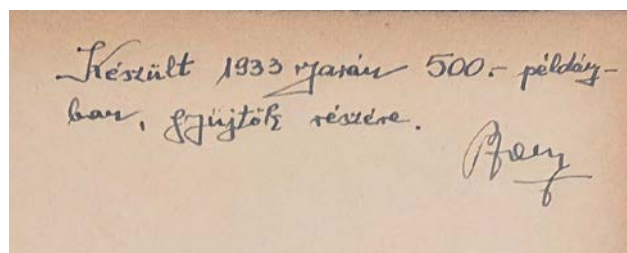 Készült 1933 nyarán 500.- példány-
ban, gyüjtők részére.